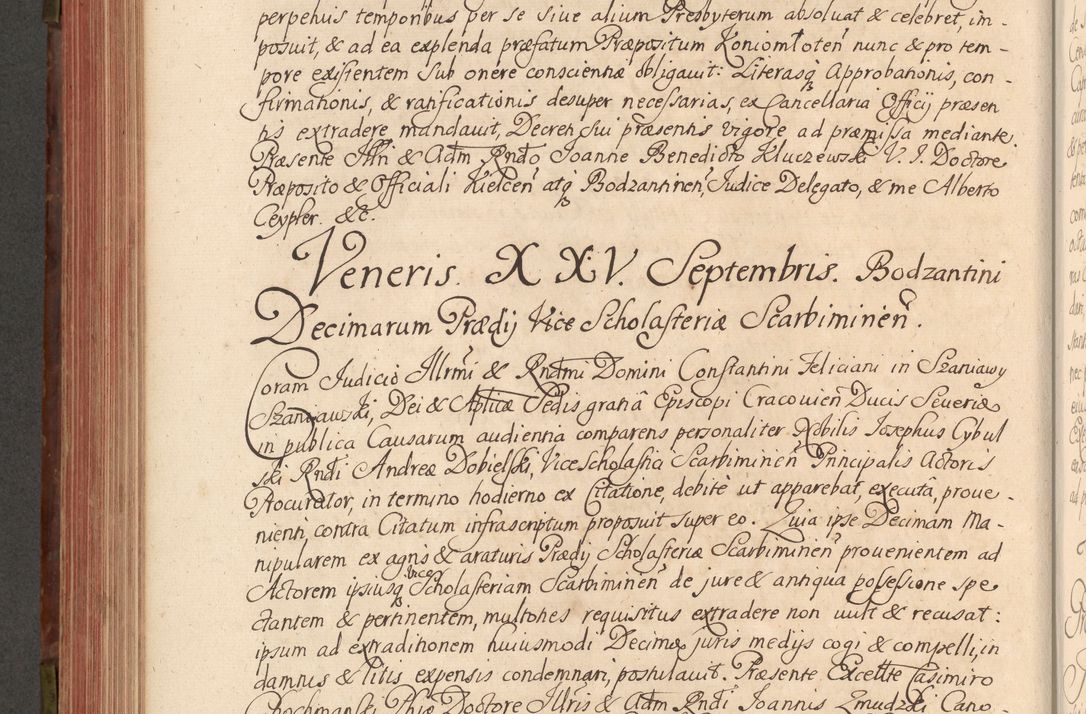 perpetuis temporibus per se siue alium Presbyterum absoluat & celebret, im-
posuit, & ad ea explenda præfatum Præpositum Koniomłoteñ nunc & pro tem-
pore existentem sub onere conscientiæ obligauit: Literasq approbationis, con-
firmationis, & ratificationis desuper necessarias, ex Cancellaria Officij præsen
tis extradere mandauit, Decreti sui præsentis vigore ad præmissa mediante.
Præsente Illri & Adm Rndo Joanne Benedicto Kluczewski V. J. Doctore
Præposito & Officiali Kielceñ atq Bodzantineñ, Judice Delegato, & me Alberto
Ceypler &c.
Veneris. XXV. Septembris. Bodzantini
Decimarum Prædij Vice Scholasteriæ Scarbimineñ.
Coram Judicio Illrmi & Rndmi Domini Constantini Feliciani in Szaniawy
Szaniawski, Dei & Aplicæ Sedis gratiâ Episcopi Cracovieñ Ducis Severiæ
in publica Causarum audientia comparens personaliter Nobilis Josephus Cybul
ski Rndi Andreæ Dobielski, Vicescholastici Scarbimineñ Principalis Actoris
Procurator, in termino hodierno ex Citatione, debitè ut apparebat, executâ, proue-
nienti, contra Citatum infrascriptum proposuit super eo. Quia ipse Decimam Ma-
nipularem ex agris & araturis Prædij Scholasteriæ Scarbimineñ prouenientem ad
Actorem ipsiusq vice Scholasteriam Scarbimineñ de jure & antiqua possessione spe
ctantem & pertinentem, multoties requisitus extradere non uult & recusat:
ipsum ad extraditionem huiusmodi Decimæ juris medijs cogi & compelli, in
damnis & litis expensis condemnari, postulauit. Præsente Excellte Casimiro
Chochmanski Phiæ Doctore Illris & Adm Rndi Joannis Zmudzki Cano-